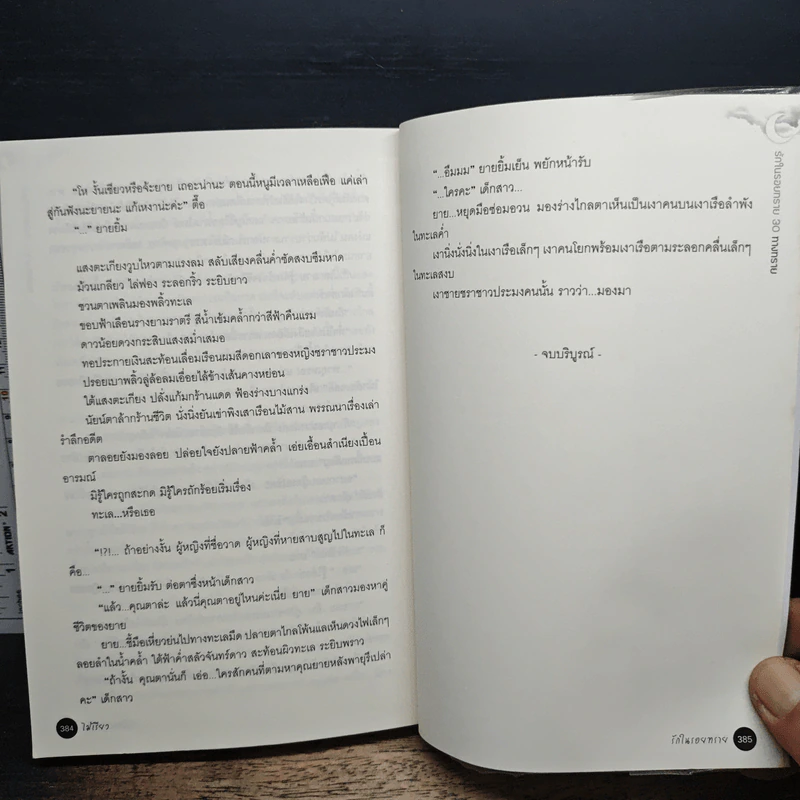 "โห งั้นเชียวหรือจ๊ะยาย เถอะน่านะ ตอนนี้หนูมีเวลาเหลือเฟือ แค่เล่า
สู่กันฟังนะยายนะ แก้เหงาน่ะค่ะ" ตื๊อ
"..." ยายยิ้ม
แสงตะเกียงวูบไหวตามแรงลม สลับเสียงคลื่นค่ำซัดสงบซึมหาด
ม้วนเกลียว ไล่ฟอง ระลอกริ้ว ระยิบยาว
ชวนตาเพลินมองพลิ้วทะเล
ขอบฟ้าเลือนรางยามราตรี สีน้ำเข้มคล้ำกว่าสีฟ้าคืนแรม
ดาวน้อยดวงกระสิบแสงสม่ำเสมอ
ทอประกายเงินสะท้อนเลื่อมเรือนผมสีดอกเลาของหญิงชราชาวประมง
ปรอยเบาพลิ้วลู่ล้อลมเอื่อยไล้ข้างเส้นคางหย่อน
ใต้แสงตะเกียง ปลั่งแก้มกร้านแดด ฟ้องร่างบางแกร่ง
นัยน์ตาล้ากร้านชีวิต นั่งนิ่งยันเข่าพิงเสาเรือนไม้สาน พรรณนาเรื่องเล่า
รำลึกอดีต
ตาลอยยังมองลอย ปล่อยใจยังปลายฟ้าคล้ำ เอ่ยเอื้อนสำเนียงเปื้อน
อารมณ์
มิรู้ใครถูกสะกด มิรู้ใครถักร้อยเริ่มเรื่อง
ทะเล...หรือเธอ
"!?!... ถ้าอย่างงั้น ผู้หญิงที่ชื่อวาด ผู้หญิงที่หายสาบสูญไปในทะเล ก็
คือ...
"..." ยายยิ้มรับ ต่อตาซึ่งหน้าเด็กสาว
"แล้ว...คุณตาล่ะ แล้วนี่คุณตาอยู่ไหนค่ะเนี่ย ยาย" เด็กสาวมองหาคู่
ชีวิตของยาย
ยาย...ชี้มือเหี่ยวย่นไปทางทะเลมืด ปลายตาไกลโพ้นแลเห็นดวงไฟเล็กๆ
ลอยลำในน้ำคล้ำ ใต้ฟ้าค่ำสลัวจันทร์ดาว สะท้อนผิวทะเล ระยิบพราว
"ถ้างั้น คุณตานั่นก็ เอ่อ...ใครสักคนที่ตามหาคุณยายหลังพายุรึเปล่า
คะ" เด็กสาว
384 ไม้เรียว
"...อืมมม" ยายยิ้มเย็น พยักหน้ารับ
"...ใครคะ" เด็กสาว...
ยาย...หยุดมือซ่อมอวน มองร่างไกลตาเห็นเป็นเงาคนบนเงาเรือลำพัง
ในทะเลค่ำ
เงานิ่งนั่งนิ่งในเงาเรือเล็กๆ เงาคนโยกพร้อมเงาเรือตามระลอกคลื่นเล็กๆ
ในทะเลสงบ
เงาชายชราชาวประมงคนนั้น ราวว่า...มองมา
- จบบริบูรณ์ -
รักในรอยทราย 30 ทางทราย
รักในรอยทราย 385